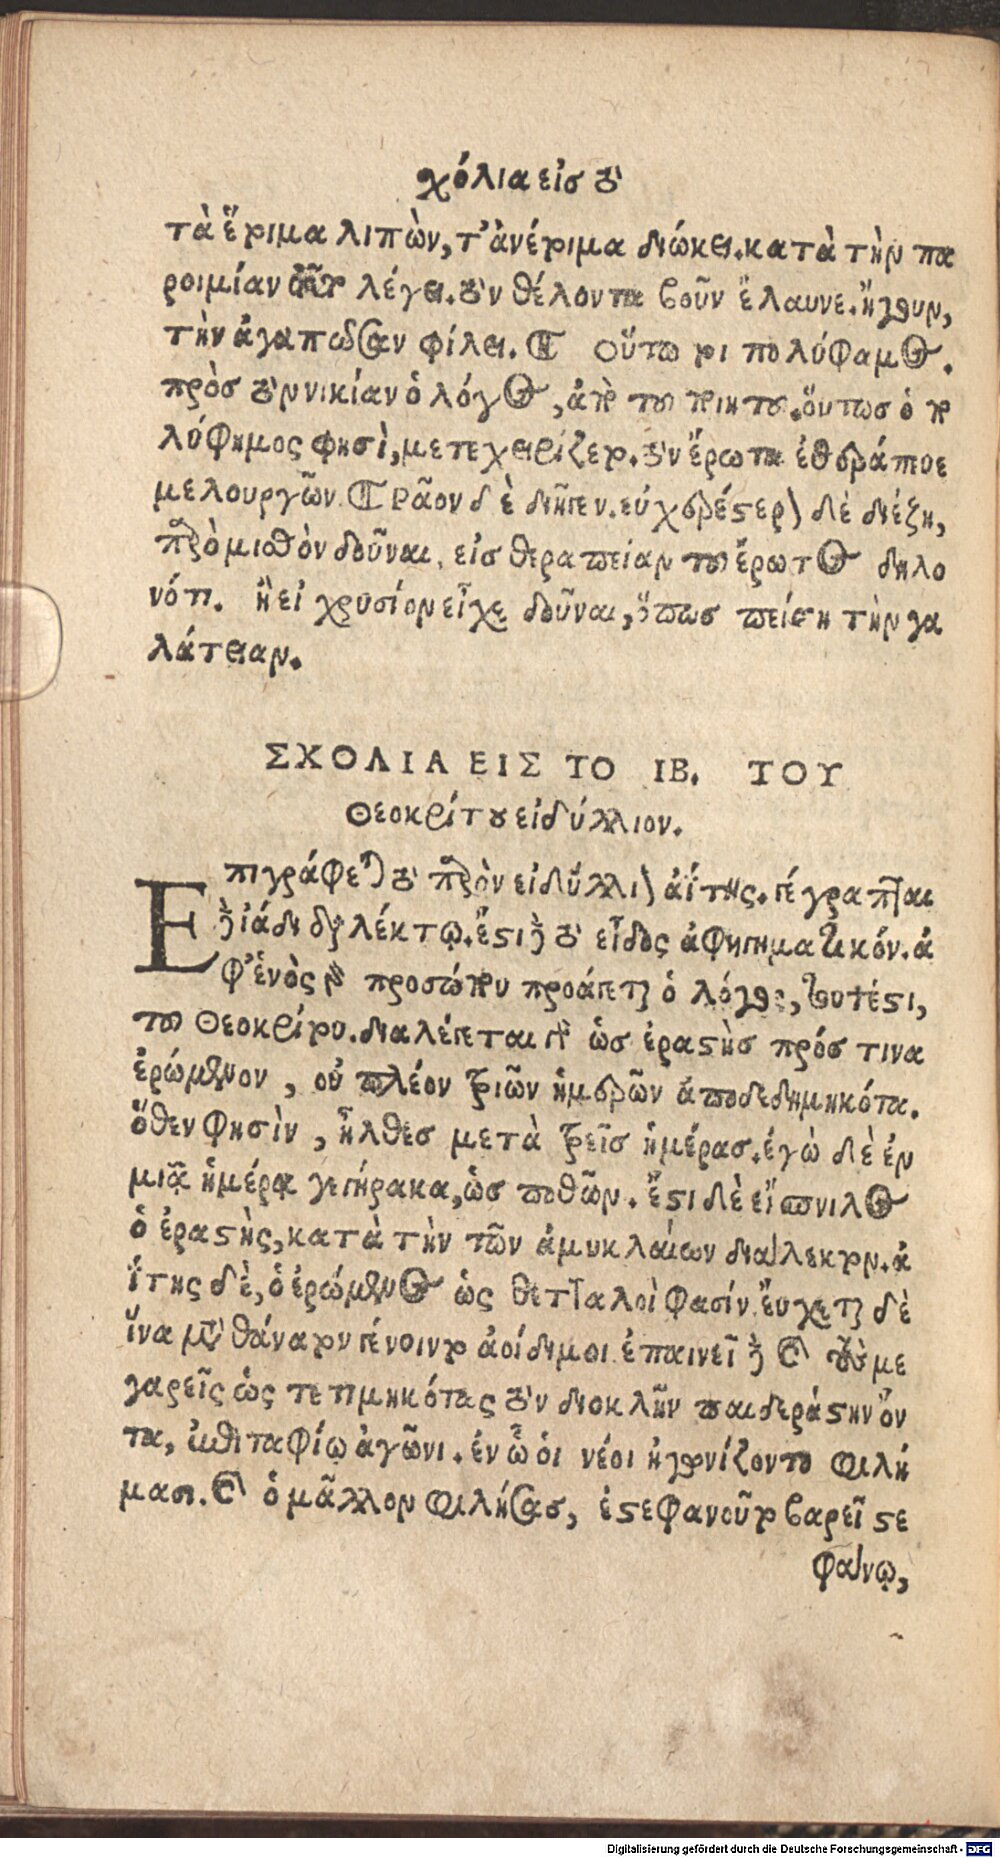 χόλια εἰσ τὸ
τὰ ἕτοιμα λιπὼν, τ' ἀνέτοιμα διώκει. κατὰ τὴν πα
ροιμίαν λέγει. τὸν θέλοντα βοῦν ἔλαυνε. ἤγουν,
τὴν ἀγαπῶσαν φίλει. Οὕτω τοι πολύφαμος.
πρὸσ τὸν νικίαν ὁ λόγος, ἀπὸ τοῦ ποιητοῦ. οὕτωσ ὁ πο
λύφημος φησὶ, μετεχειρίζετο. τὸν ἔρωτα ἐθεράπευε
μελουργῶν. Ρᾶον δὲ διῆγεν. εὐχερέστερον δὲ διέζη,
παρὸ μισθὸν δοῦναι, εἰσ θεραπείαν τοῦ ἔρωτος δηλο
νότι. ἢ εἰ χρυσίον εἶχε δοῦναι, ὅπωσ πείση τὴν γα
λάτειαν.
ΣΧΟΛΙΑ ΕΙΣ ΤΟ ΙΒ. ΤΟΥ
Θεοκρίτου εἰδύλλιον.
Επιγράφεται τὸ παρὸν εἰδύλλιον ἀΐτης. γέγραπται
δὲ ἰάδι διαλέκτῳ. ἔστι δὲ τὸ εἶδος ἀφηγηματικόν. ἀ
φ' ἑνὸς γὰρ προσώπου προάγεται ὁ λόγος, τουτέστι,
τοῦ Θεοκρίτου. διαλέγεται γὰρ ὡσ ἐραστὴσ πρόσ τινα
ἐρώμενον, οὐ πλέον τριῶν ἡμερῶν ἀποδεδημηκότα.
ὅθεν φησὶν, ἦλθεσ μετὰ τρεῖσ ἡμέρασ. ἐγὼ δὲ ἐν
μιᾷ ἡμέρᾳ γεγήρακα, ὡσ ποθῶν. ἔστι δὲ εἴσπνιλος
ὁ ἐραστὴς, κατὰ τὴν τῶν ἀμυκλαίων διάλεκτον. ἀ
ΐτης δὲ, ὁ ἐρώμενος ὡς θετταλοὶ φασίν. εὔχεται δὲ
ἵνα μετὰ θάνατον γένοιντο ἀοίδιμοι. ἐπαινεῖ δὲ καὶ τοὺς με
γαρεῖς ὡς τετιμηκότας τὸν διοκλῆν παιδεράστην ὄν
τα, ἐπιταφίῳ ἀγῶνι. ἐν ᾧ οἱ νέοι ἠγωνίζοντο φιλή
μασι. καὶ ὁ μᾶλλον φιλήσασ, ἐστεφανοῦτο βαρεῖ στε
φάνῳ,
Digitalisierung gefördert durch die Deutsche Forschungsgemeinschaft - DFG